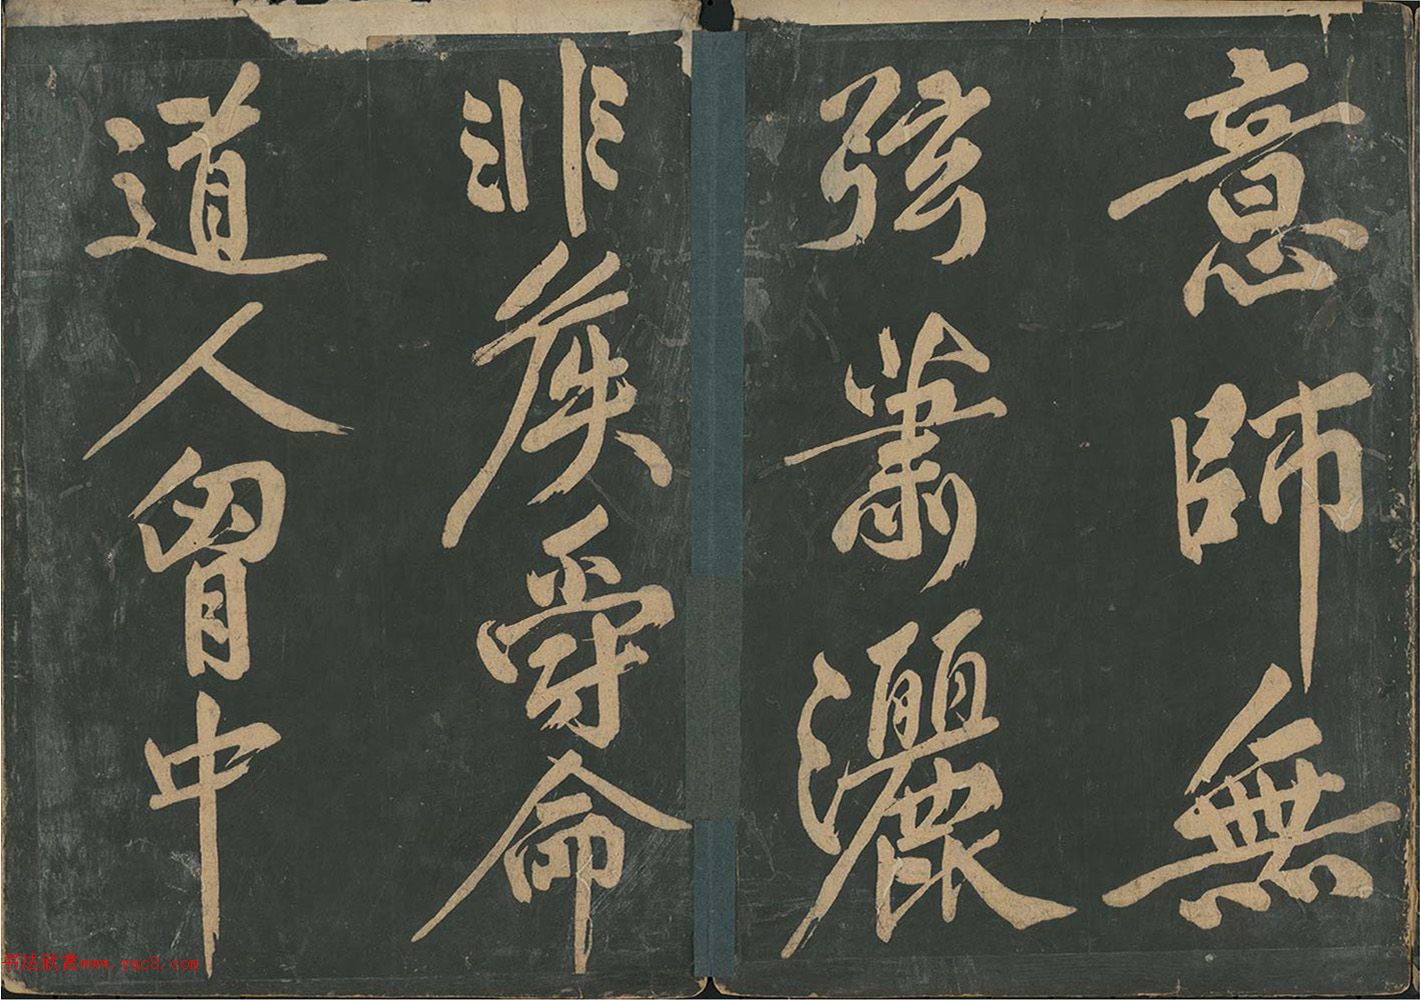 意師無
弦蕭灑
非矦爵命
道人胷中
书法欣赏www.yac8.com